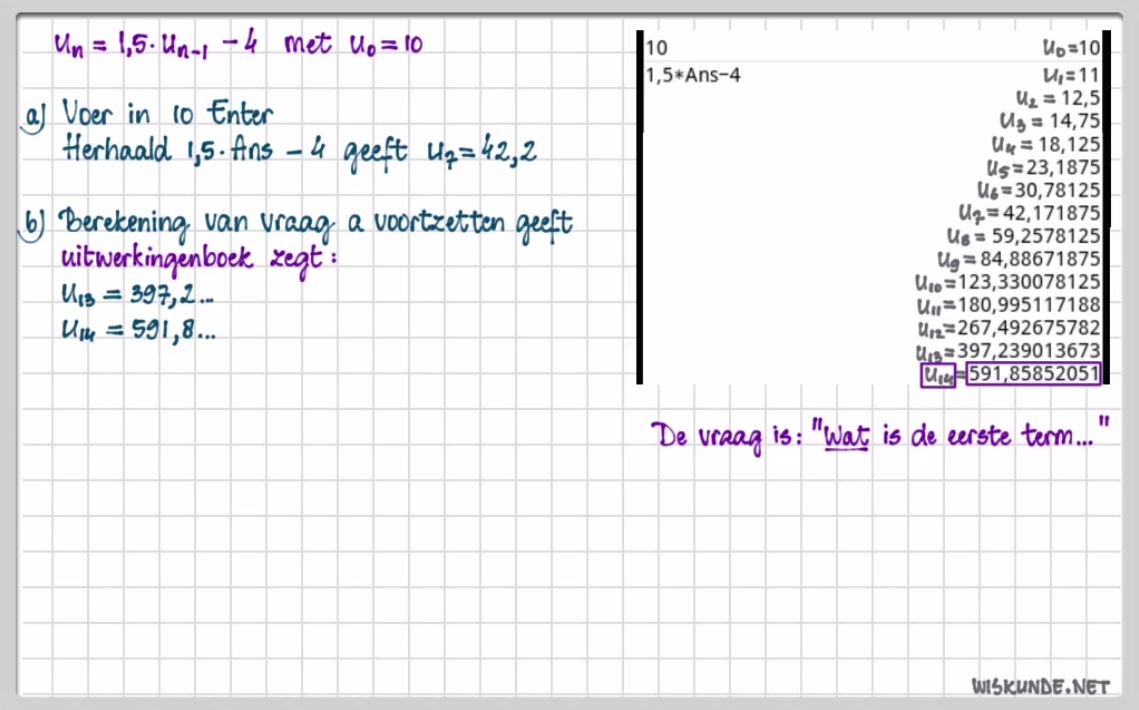 Un = 1,5·Un-1 - 4 met U0 = 10
a) Voer in 10 Enter
Herhaald 1,5·Ans - 4 geeft U7=42,2
b) Berekening van vraag a voortzetten geeft
uitwerkingenboek zegt:
U13 = 397,2...
U14 = 591,8...
10 U0=10
1,5*Ans−4 U1=11
U2 = 12,5
U3 = 14,75
U4 = 18,125
U5=23,1875
U6=30,78125
U7=42,171875
U8 = 59,2578125
U9=84,88671875
U10=123,330078125
U11=180,995117188
U12=267,492675782
U13=397,239013673
U14=591,85852051
De vraag is: "Wat is de eerste term..."
WISKUNDE.NET